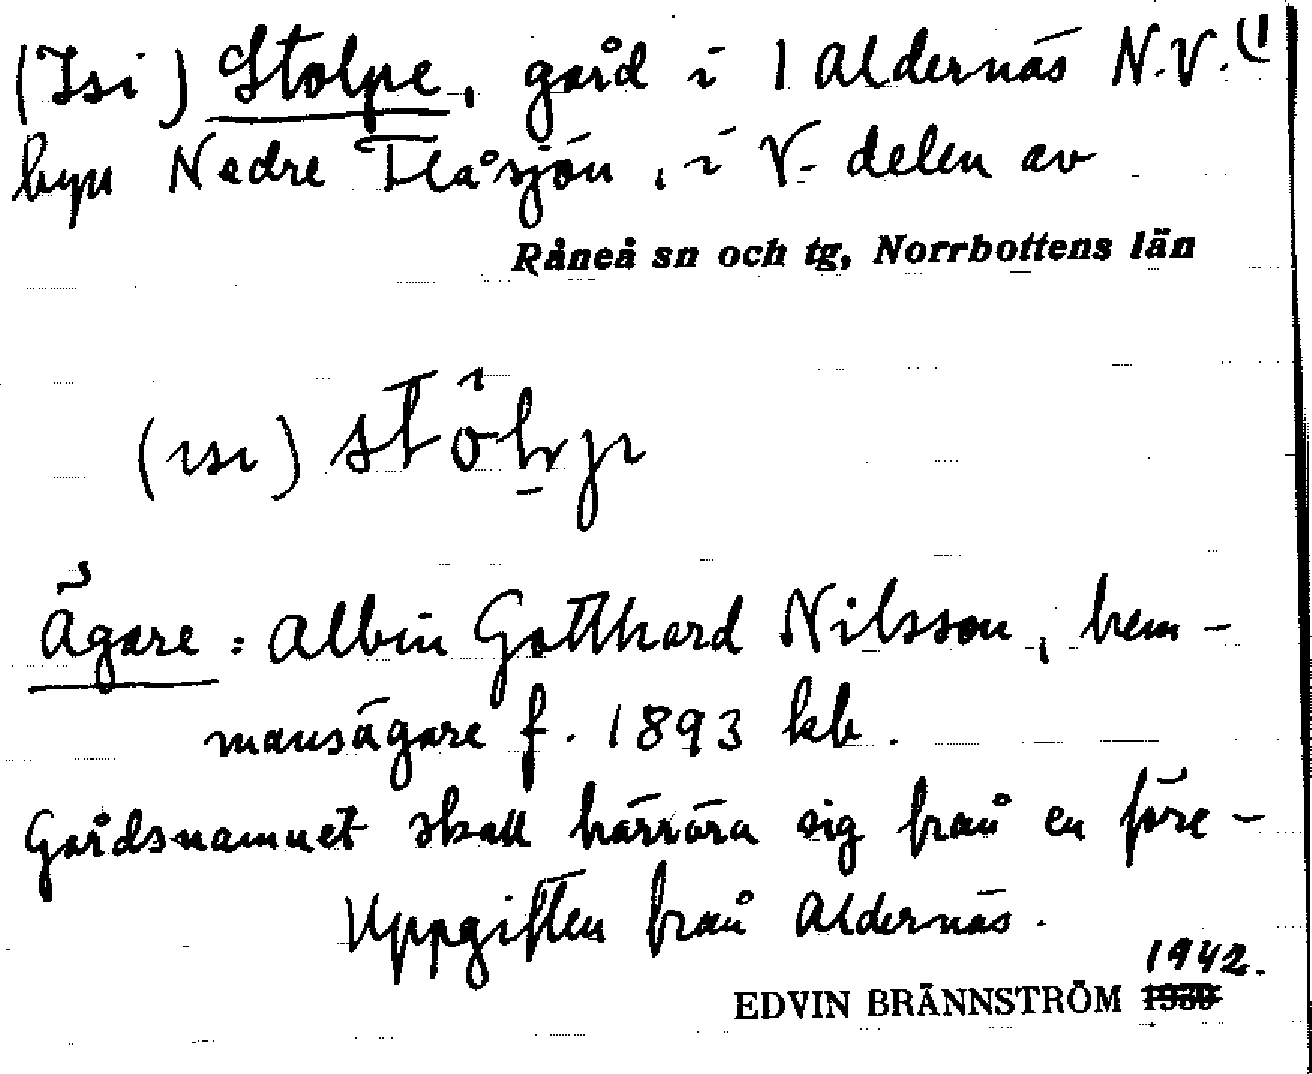 (Isi) Stolpe, gård i 1 Aldernäs N.V. (1
byn Nedre Flåsjön, i V. delen av
Råneå sn och tg, Norrbottens län
(ɪsɪ)
Ägare: Albin Gotthard Nilsson, hem-
mansägare f. 1893 kb.
Gårdsnamnet skall härröra sig från en före-
Uppgiften från Aldernäs.
1942.
EDVIN BRÄNNSTRÖM 1930